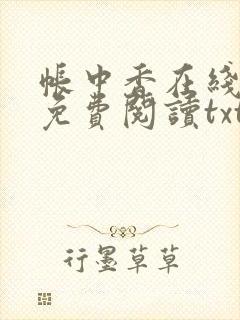 帳中香在綫
免費閱讀txt
行墨草草